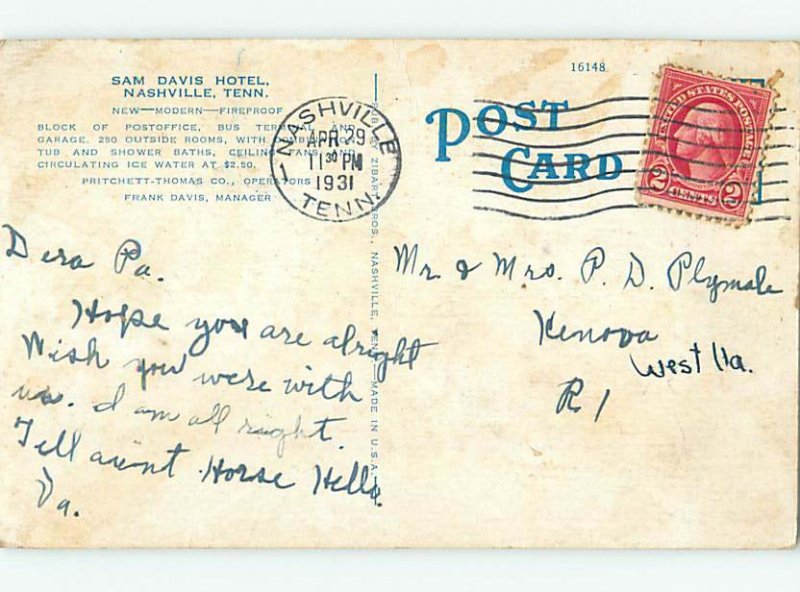 16148
SAM DAVIS HOTEL,
NASHVILLE, TENN.
NEW—MODERN—FIREPROOF
BLOCK OF POSTOFFICE, BUS TERMINAL AND
GARAGE. 250 OUTSIDE ROOMS, WITH
TUB AND SHOWER BATHS, CEILING FANS AND
CIRCULATING ICE WATER AT $2.50.
PRITCHETT-THOMAS CO., OPERATORS
FRANK DAVIS, MANAGER
NASHVILLE
APR 29
11 30 PM
1931
TENN.
PUB. BY ZIBART BROS., NASHVILLE, TENN.—MADE IN U.S.A.
POST
CARD
UNITED STATES POSTAGE
2 CENTS 2
Dera Pa.
Hope you are alright
Wish you were with
us. I am all right.
Tell aunt Horse Hello.
Va.
Mr & Mrs. P. D. Plymale
Kenova
West Va.
R 1